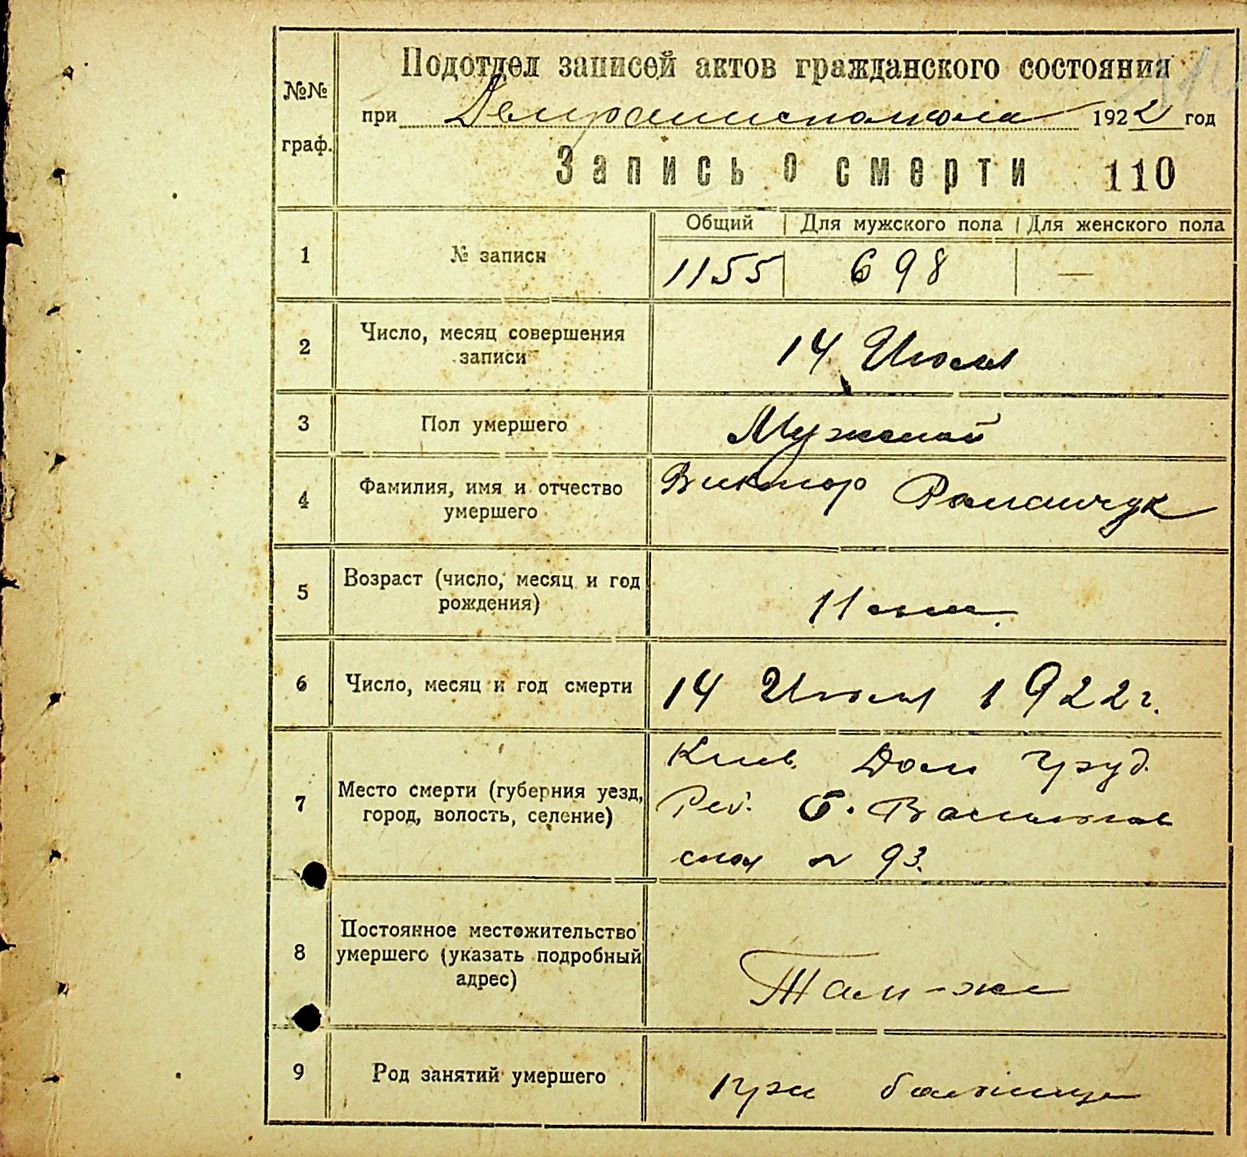 №№ граф.
Подотдел записей актов гражданского состояния
при 1922 год
Запись о смерти 110
Общий Для мужского пола Для женского пола
1 № записи 1155 698 —
2 Число, месяц совершения
записи 14 Июля
3 Пол умершего Мужской
4 Фамилия, имя и отчество
умершего Виктор Романчук
5 Возраст (число, месяц и год
рождения) 11
6 Число, месяц и год смерти 14 Июля 1922 г.
7 Место смерти (губерния уезд,
город, волость, селение)
Киев. Дом груд.
Реб. Б. Васильков
ская № 93.
8 Постоянное местожительство
умершего (указать подробный
адрес) Там-же
9 Род занятий умершего при больнице